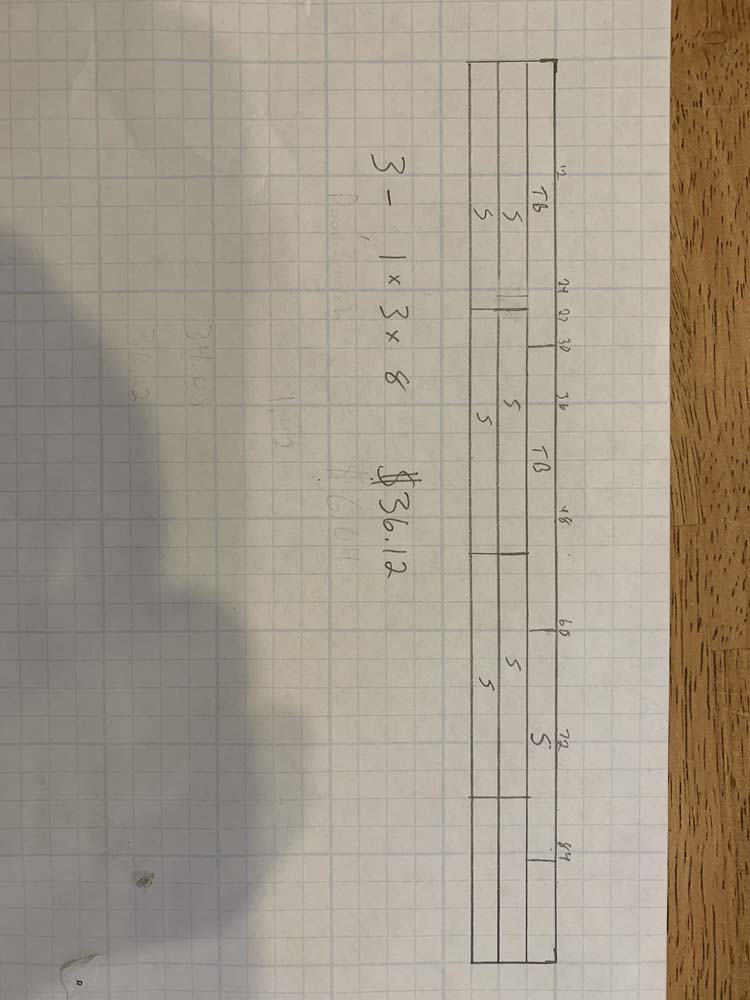 12 24 27 30 36 48 60 72 84
TB TB S
S S S
S S S
3 - 1 x 3 x 8 $36.12
1.92
34.08
36.12
R